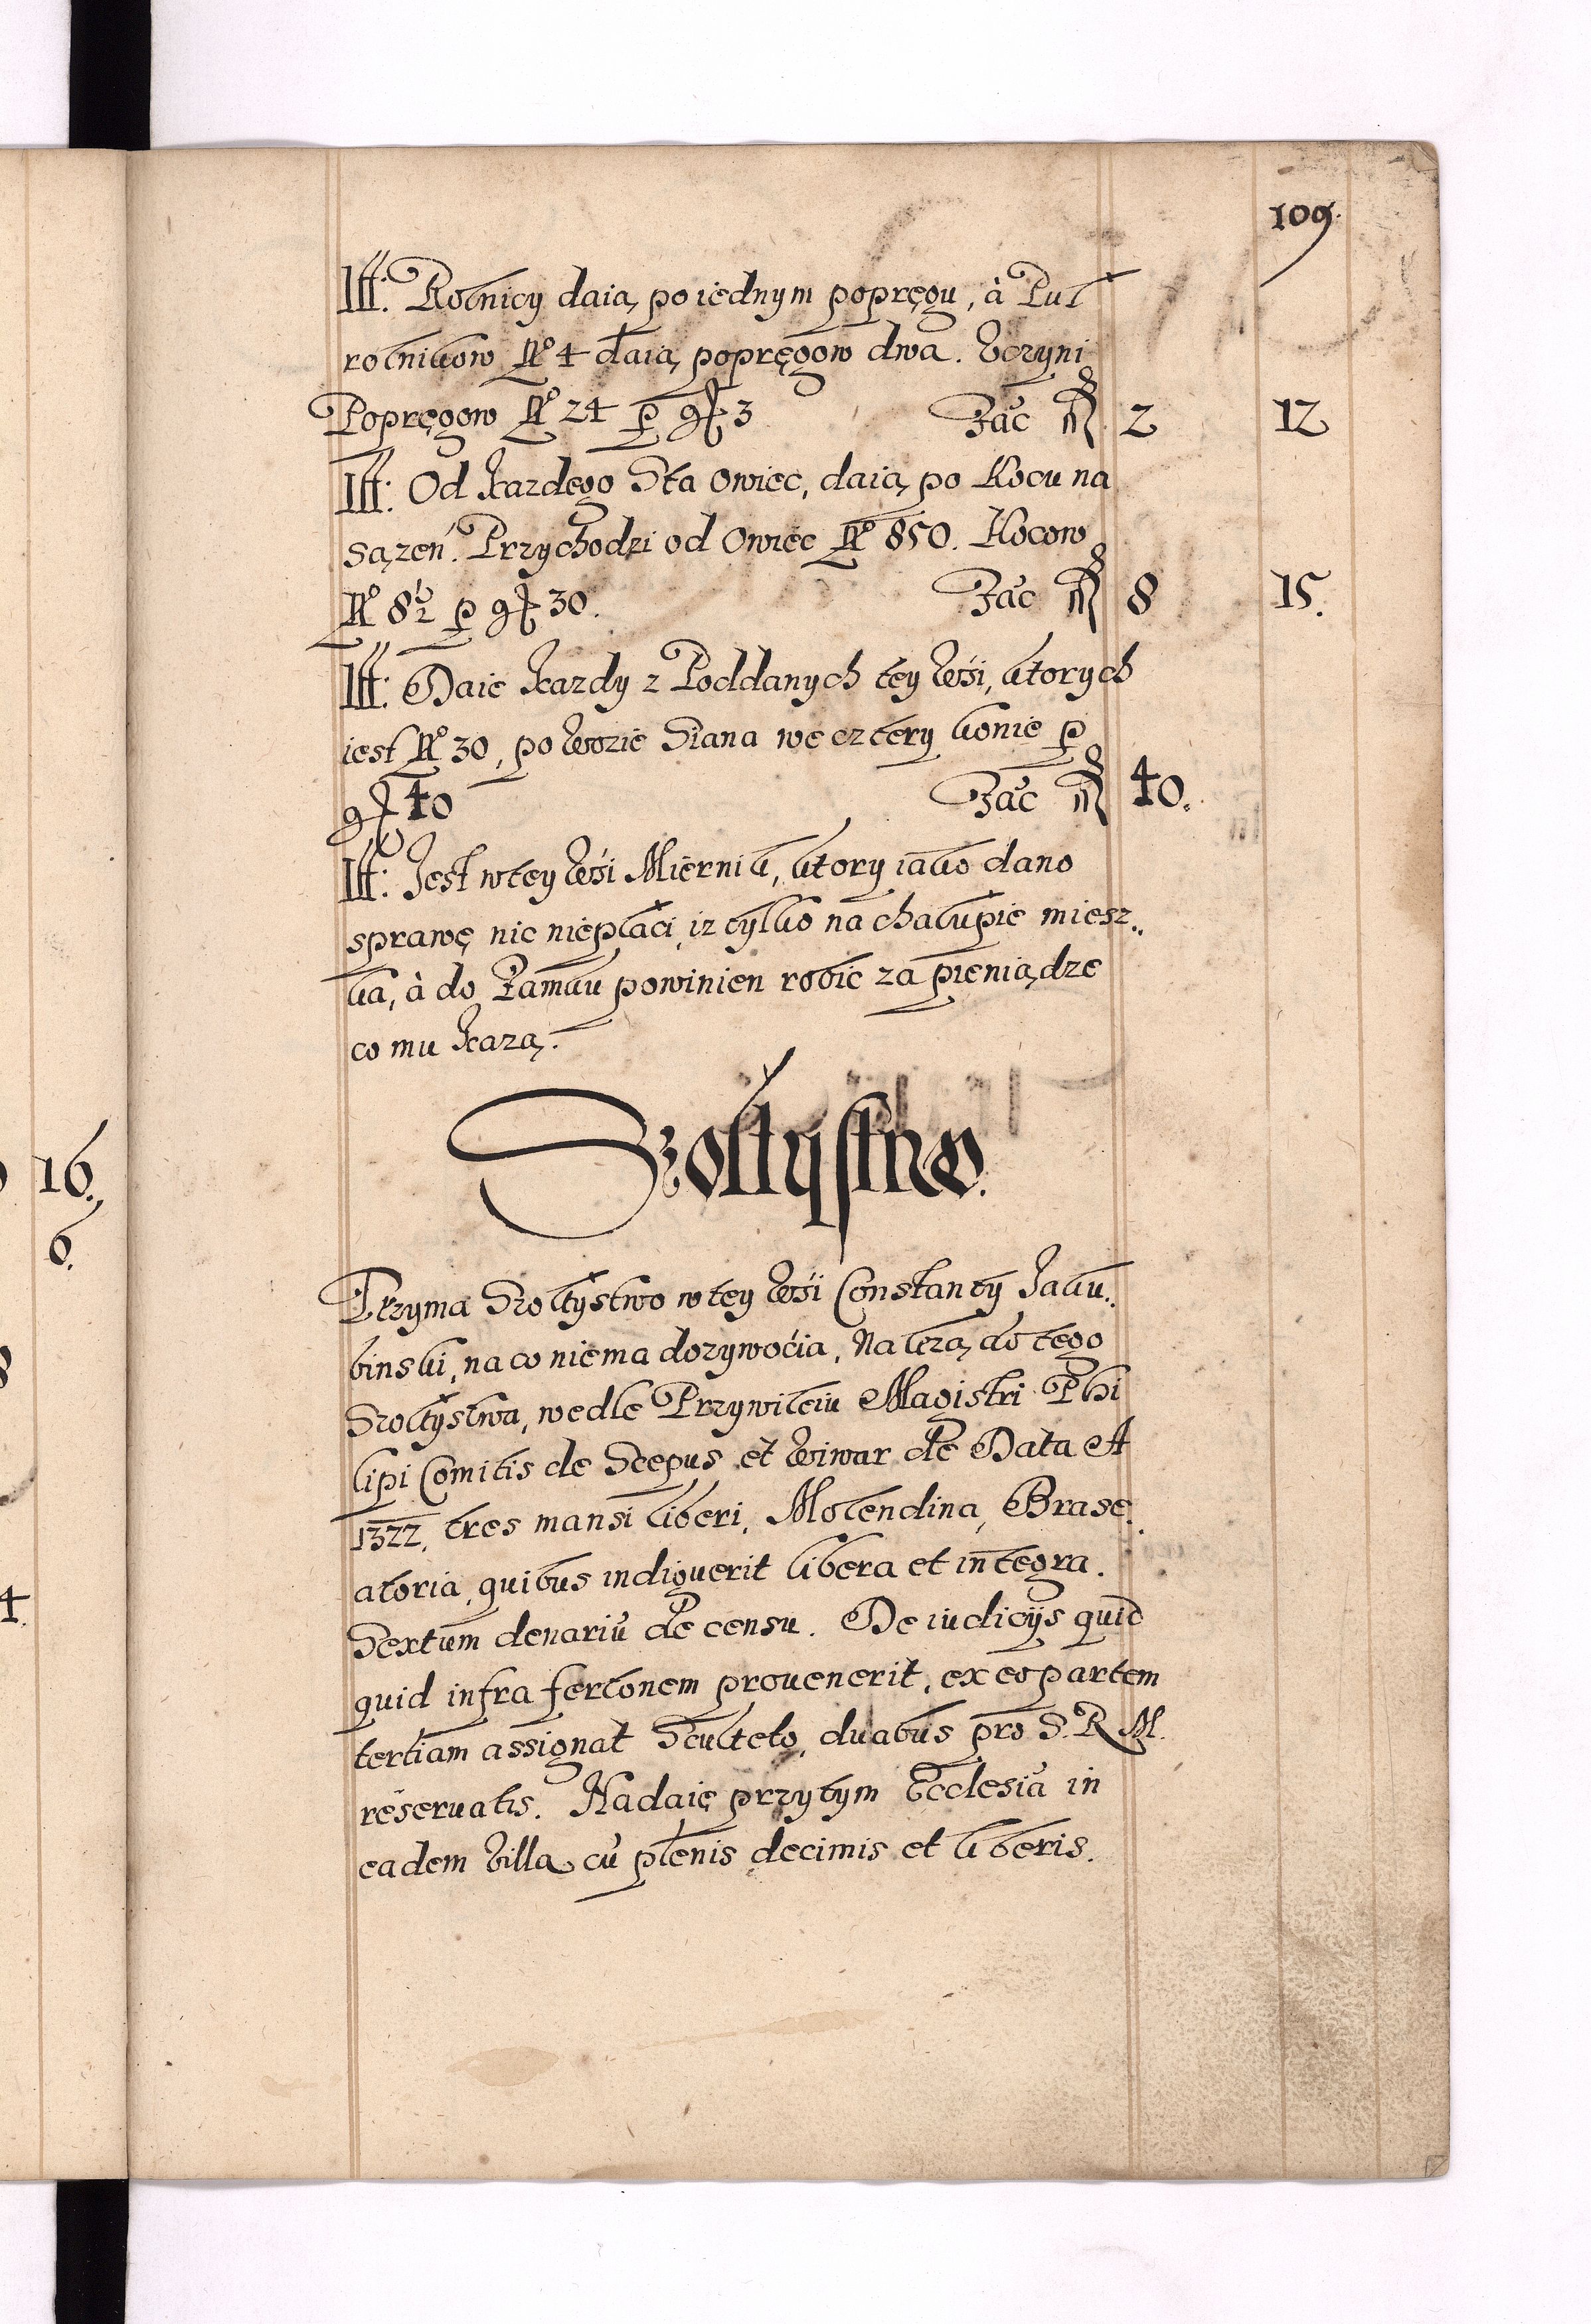 109.
Itt: Rolnicy daią po iednym popręgu, à Puł
rolnikow No 4 daią popręgow dwa. Vczyni
Popręgow No 24 p gr 3 Fac fl 2 12
Itt: Od kazdego Sta owiec, daią po Kocu na
sązeń. Przychodzi od Owiec No 850. Kocow
No 8½ p gr 30. Fac fl 8 15.
Itt: Daie kazdy z Poddanych tey Wsi, ktorych
iest No 30, po Wozie Siana we cztery konie p
gr 40 Fac fl 40.
Itt: Jest w tey Wsi Miernik, ktory iako dano
sprawę nic niepłaci, iz tylko na chałupie miesz..
ka, à do Zamku powinien robic za pieniądze
co mu kazą.
Szołtystwo.
Trzyma Szołtystwo w tey Wsi Constanty Jaku..
binski, na co niema dozywocia, Naleza do tego
Szołtystwa, wedle Przywileiu Magistri Phi
lipi Comitis de Scepus et Wiwar de Data A
1322, tres mansi liberi, Molendina, Brase..
atoria, quibus indiguerit libera et integra.
Sextum denariũ de censu. De iudicijs quid
quid infra fertonem prouenerit, ex eo partem
tertiam assignat Sculteto, duabus pro S. R M.
reseruatis. Nadaie przytym Ecclesiã in
eadem Villa cũ plenis decimis et liberis.
16.
6.
8
4.